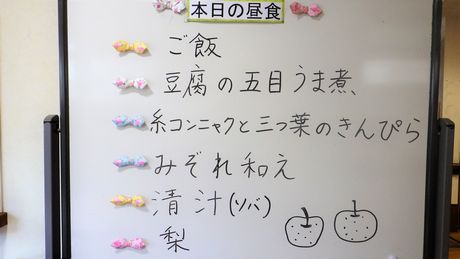 本日の昼食
ご飯
豆腐の五目うま煮、
糸コンニャクと三つ葉のきんぴら
みぞれ和え
清汁(ソバ)
梨